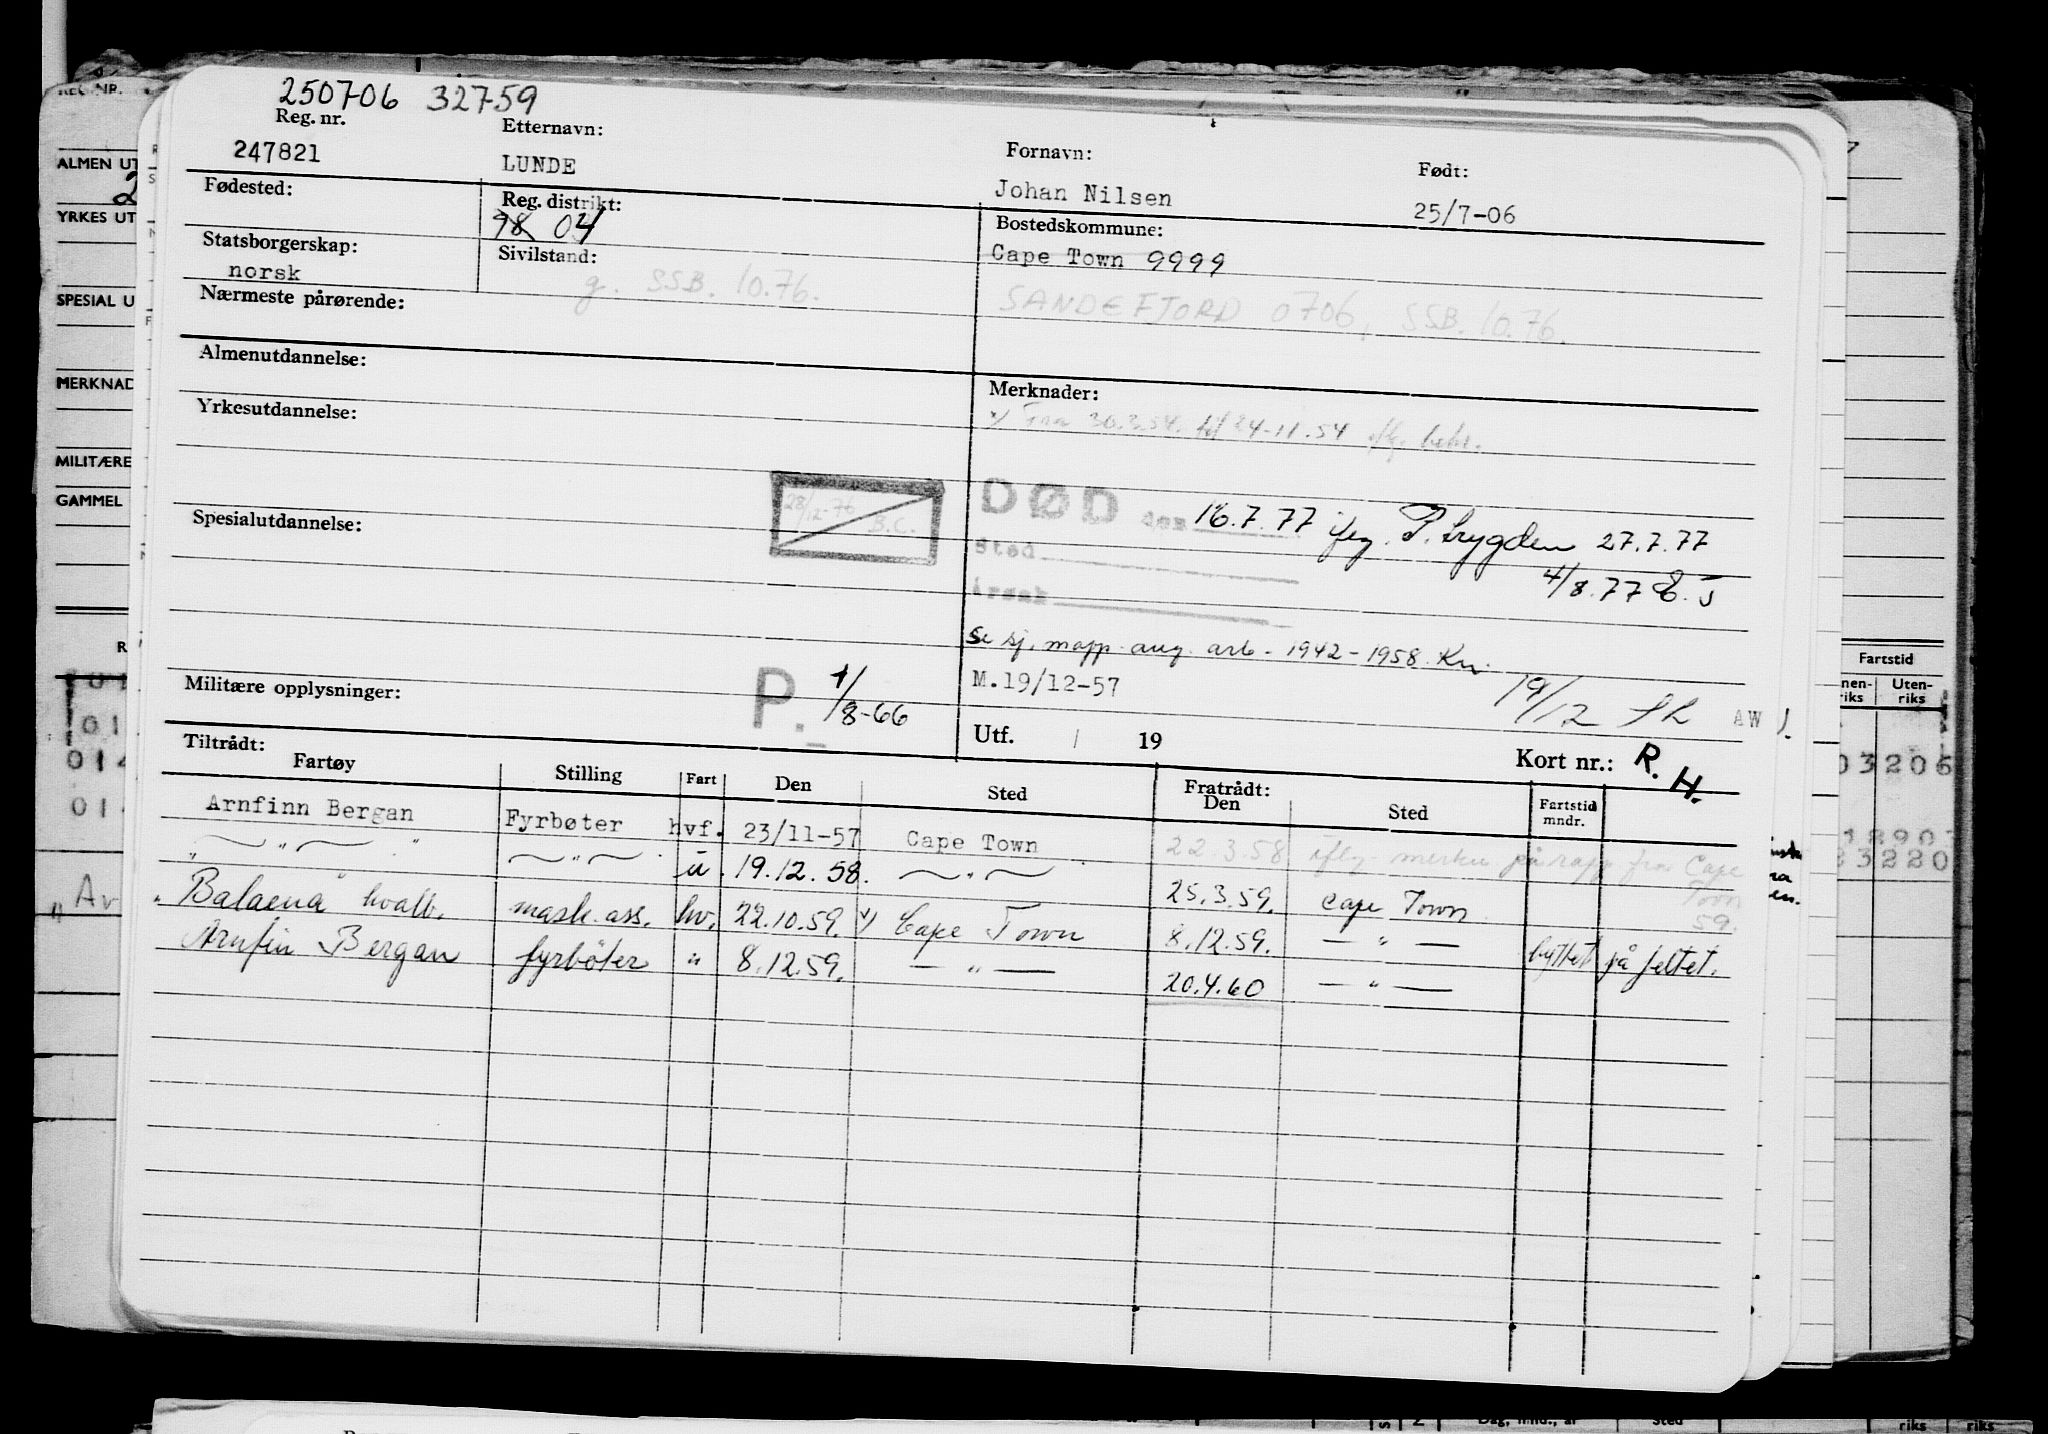 250706 32759
Reg. nr. Etternavn: Fornavn: Født:
247821 LUNDE Johan Nilsen 25/7-06
Fødested: Reg. distrikt: Bostedskommune:
98 04 Cape Town 9999
Statsborgerskap: Sivilstand:
norsk g. SSB. 10.76. SANDEFJORD 0706, SSB. 10.76.
Nærmeste pårørende:
Almenutdannelse: Merknader:
x) Fra 30.3.54. til 24-11.54 iflg.
Yrkesutdannelse:
28/12-76 B.C.
DØD den 16.7.77 iflg. P. trygden 27.7.77
Spesialutdannelse: Sted
4/8.77 E.J
Årsak
Se sj. mapp. ang. arb. - 1942-1958. Kn.
Militære opplysninger: P. 1/8-66 M.19/12-57 19/12 AW
Utf. / 19 Kort nr.: R.H.
Tiltrådt: Fratrådt:
Fartøy Stilling Fart Den Sted Den Sted Fartstid mndr.
Arnfinn Bergan Fyrbøter hvf. 23/11-57 Cape Town 22.3.58 iflg. merkn på rapp fra Cape Town 59.
" " u. 19.12.58. " 25.3.59. Cape Town
Balaena hvalk. mask. ass. hv. 22.10.59. x) Cape Town 8.12.59. — " — byttet på feltet.
Arnfin Bergan fyrbøter " 8.12.59. — " — 20.4.60 — " —
REG. NR.
ALMEN UT
2
YRKES UT
SPESIAL U
MERKNAD
MILITÆRE
GAMMEL
014
01
Av
Fartstid
Uten-
riks
03206
3220
Dag, mnd., år Sted riks riks